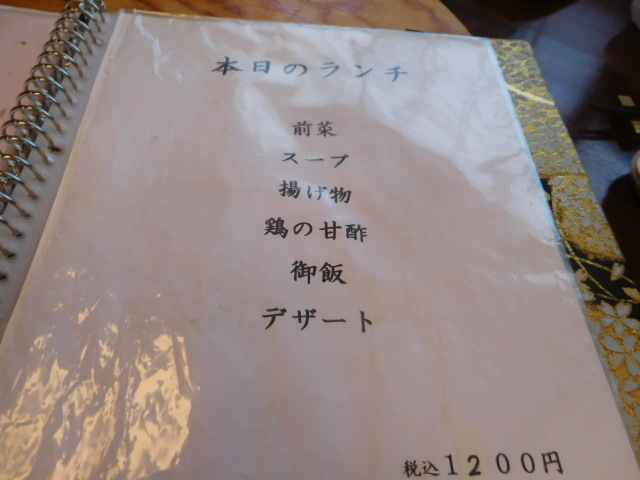 本日のランチ
前菜
スープ
揚げ物
鶏の甘酢
御飯
デザート
税込1200円